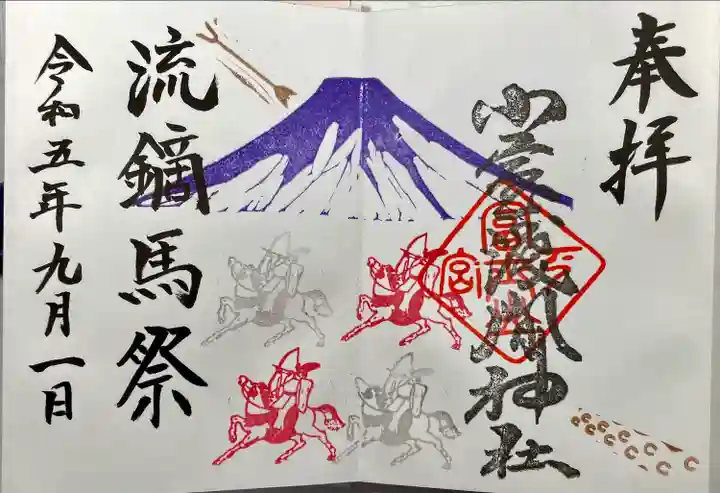 奉拝
小室浅間神社
流鏑馬祭
令和五年九月一日